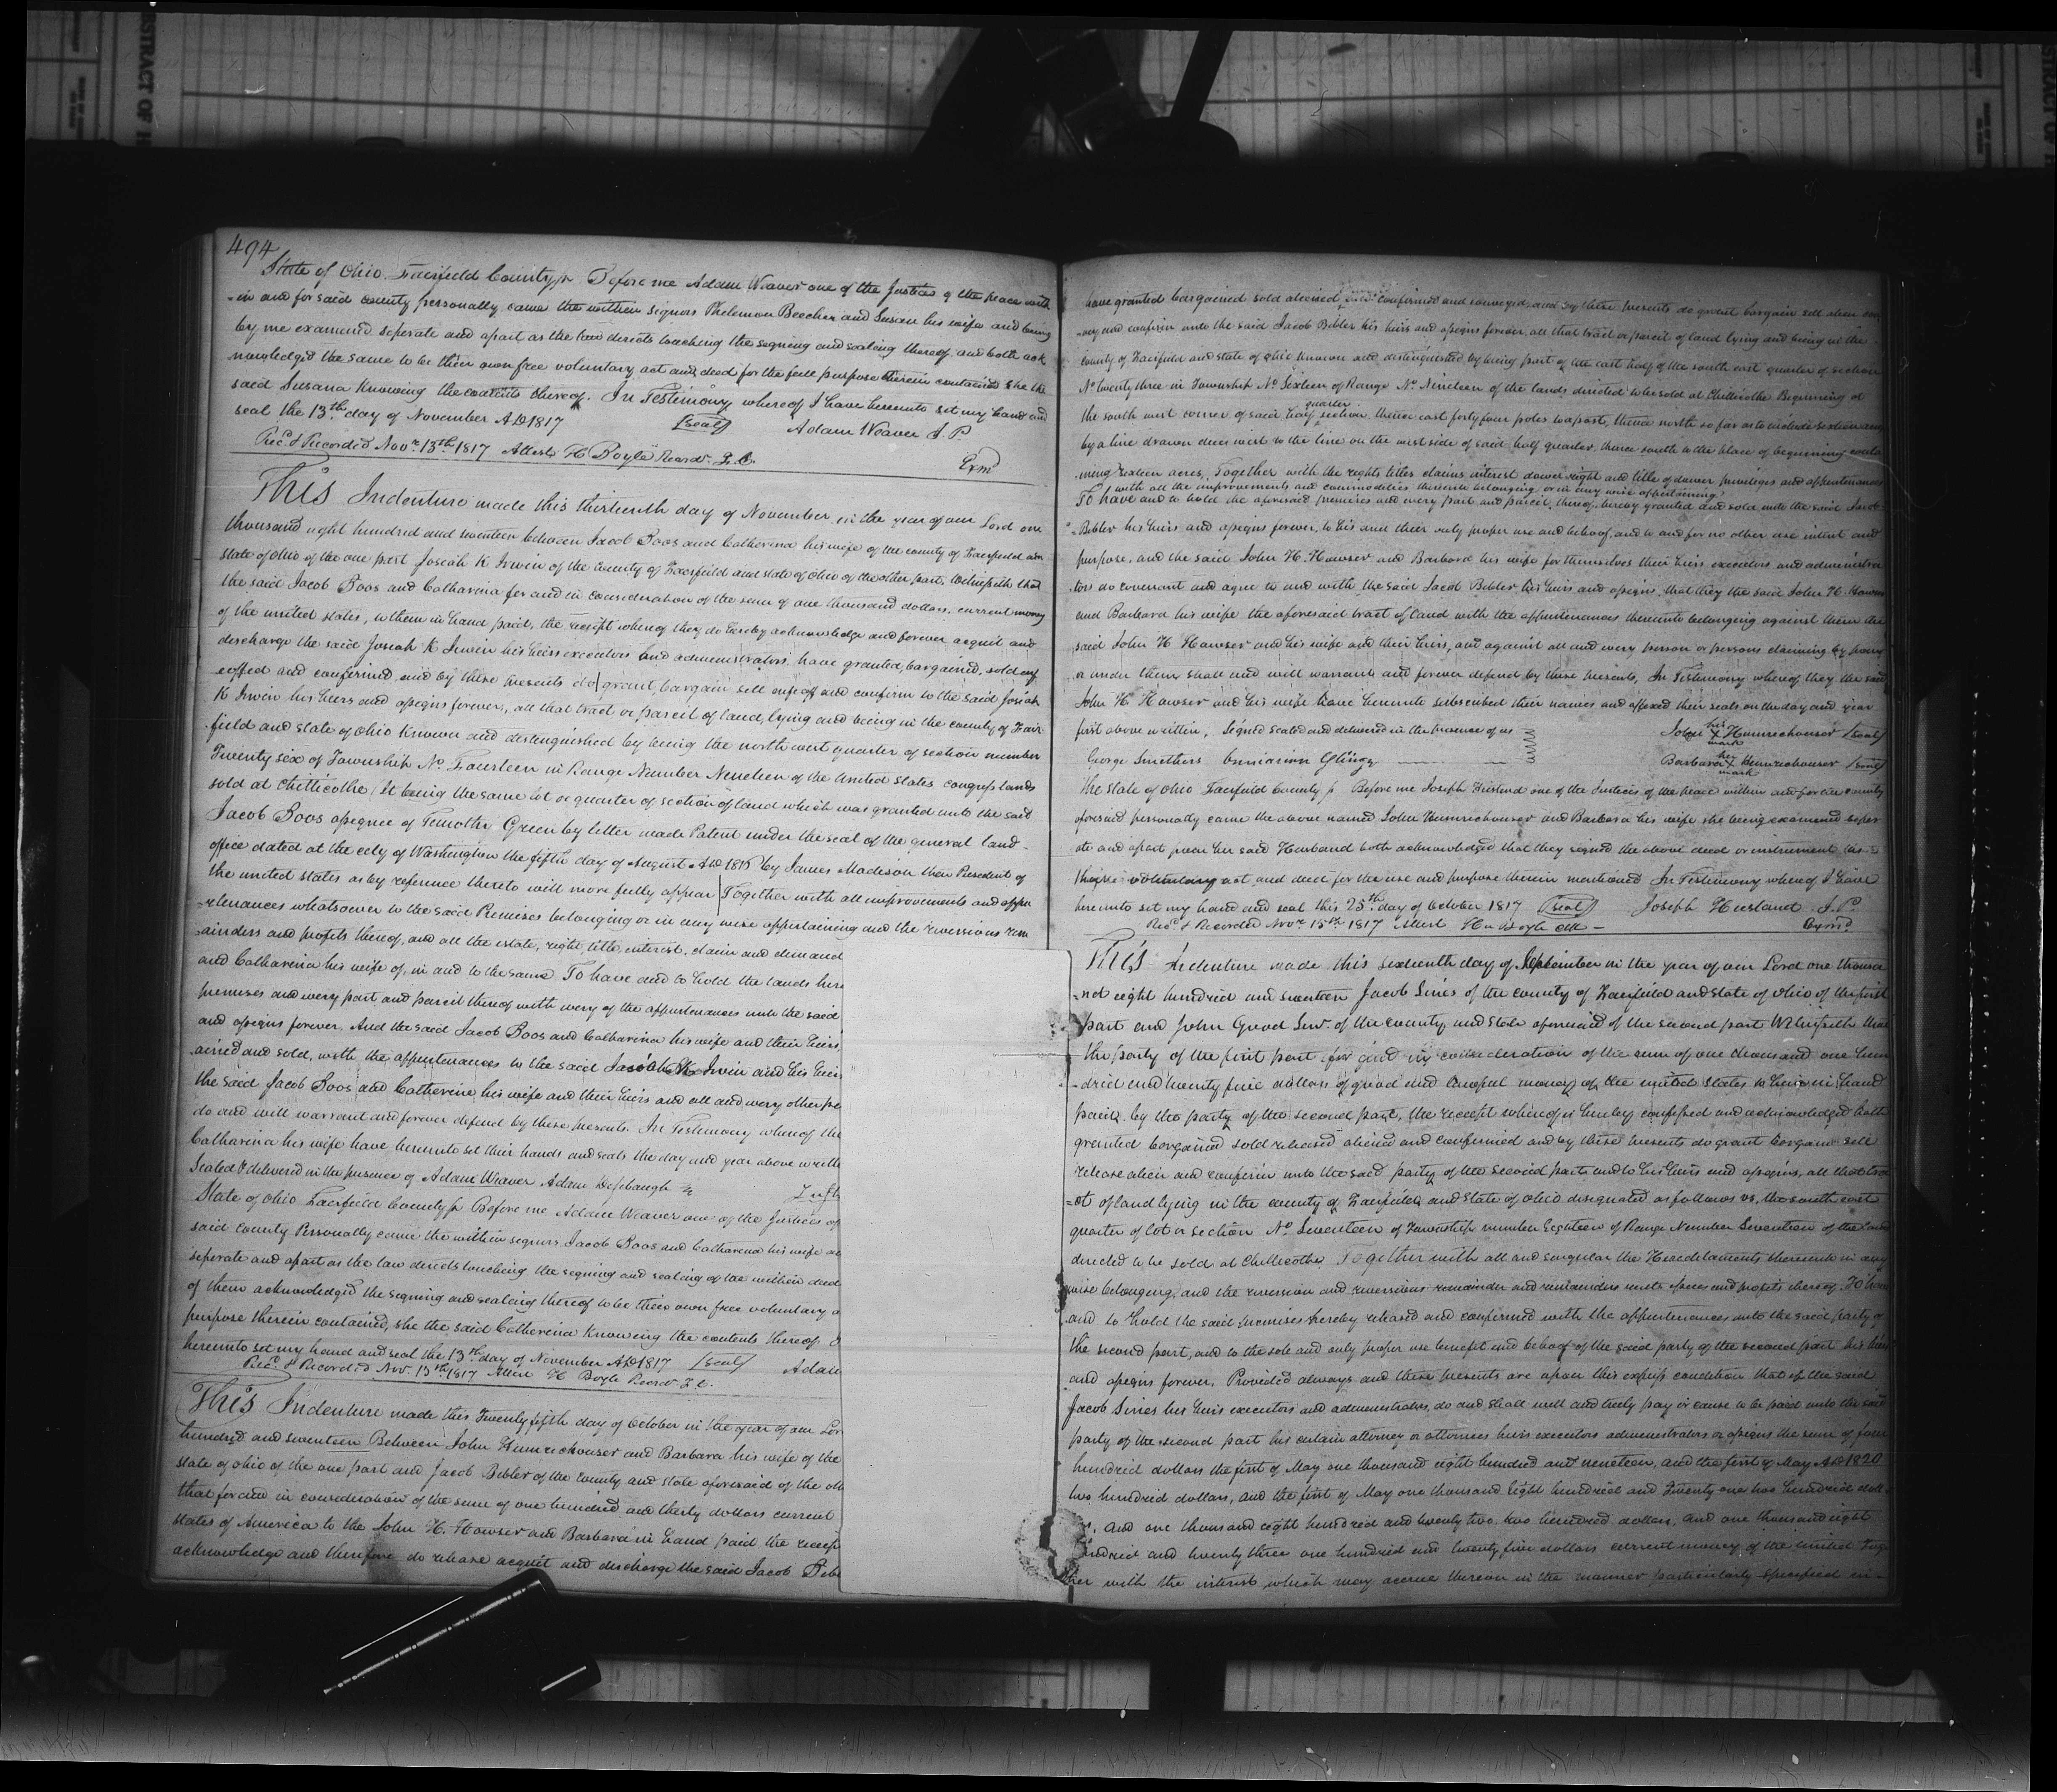 494
State of Ohio. Fairfield County ss Before me Adam Weaver one of the Justices of the peace with
-in and for said county personally came the within signors Philemon Beecher and Susan his wife and being
by me examined seperate and apart as the law directs touching the signing and sealing thereof, and both ack
nowledged the same to be their own free voluntary act and deed for the full purpose therein contained she the
said Susana Knowing the contents thereof. In Testimony whereof I have hereunto set my hand and
seal the 13th day of November AD 1817 (seal) Adam Weaver J.P.
Recd & Recorded Novr 13th 1817 Attest H Boyle Recordr. F. C. Exmd
This Indenture made this thirteenth day of November in the year of our Lord one
thousand eight hundred and seventeen between Jacob Boos and Catharina his wife of the county of Fairfield and
state of Ohio of the one part Josiah K Irwin of the county of Fairfield and state of Ohio of the other part, Witnesseth that
the said Jacob Boos and Catharina for and in consideration of the sum of one thousand dollars, current money
of the united states, to them in hand paid, the receipt whereof they do hereby acknowledge and forever acquit and
discharge the said Josiah K Irwin his heirs executors and administrators, have granted, bargained, sold enf
eoffed and confirmed, and by these presents do grant, bargain sell enfeoff and confirm to the said Josiah
K Irwin his heirs and assigns forever, all that tract or parcel of land, lying and being in the county of Fair-
field and state of Ohio Known and distinguished by being the north west quarter of section number
Twenty six of Township No Fourteen in Range Number Nineteen of the United States congress lands
sold at Chillicothe (It being the same lot or quarter of section of land which was granted unto the said
Jacob Boos assignee of Timothy Green by letter made Patent under the seal of the general land-
office dated at the city of Washington the fifth day of August AD by James Madison then President of
the united states as by reference thereto will more fully appear) Together with all improvements and appu
-rtenances whatsoever to the said Premises belonging or in any wise appertaining and the reversions rem
ainders and profits thereof, and all the estate, right, title, interest, claim and demand
and Catharina his wife of, in and to the same To have and to hold the lands here
premises and every part and parcel thereof with every of the appurtenances unto the said
and assigns forever. And the said Jacob Boos and Catharina his wife and their heirs,
ained and sold, with the appurtenances to the said Josiah K Irwin and his heirs
the said Jacob Boos and Catherine his wife and their heirs and all and every other pe
do and will warrant and forever defend by these presents. In Testimony whereof the
Catharina his wife have hereunto set their hands and seals the day and year above writte
Sealed & delivered in the presence of Adam Weaver Adam Defebaugh
State of Ohio Fairfield County ss Before me Adam Weaver one of the Justices of
said County Personally came the within signers Jacob Boos and Catharina his wife
seperate and apart as the law directs touching the signing and sealing of the within deed
of them acknowledged the signing and sealing thereof to be their own free voluntary a
purpose therein contained, she the said Catherina Knowing the contents thereof
hereunto set my hand and seal the 13th day of November AD 1817 (seal) Adam
Recd & Recorded Nov. 13th 1817 Attest H Boyle Recordr F. C.
This Indenture made this Twenty fifth day of October in the year of our Lor
hundred and seventeen Between John Humrichouser and Barbara his wife of the
state of ohio of the one part and Jacob Bibler of the county and state aforesaid of the oth
that for and in consideration of the sum of one hundred and thirty dollars current
states of America to the John H. Howser and Barbara in hand paid the receip
acknowledge and therefore do release acquit and discharge the said Jacob Bib
have granted bargained sold aliened and confirmed and conveyed, and by these presents do grant bargain sell alien con
-vey and confirm unto the said Jacob Bibler his heirs and assigns forever, all that tract or parcel of land lying and being in the
county of Fairfield and state of ohio known and distinguished by being part of the east half of the south east quarter of section
No twenty three in Township No Sixteen of Range No Nineteen of the lands directed to be sold at Chillicothe Beginning at
the south west corner of said half quarter section thence east forty four poles to a post, thence north so far as to include sixteen acres
by a line drawn due west to the line on the west side of said half quarter, thence south to the place of beginning contai
ning sixteen acres, Together with the rights titles claims interest dower right and title of dower privileges and appurtenances
with all the improvements and commodities thereunto belonging or in any wise appertaining,
To have and to hold the aforesaid premises and every part and parcel, thereof, hereby granted and sold unto the said Jacob
Bibler his heirs and assigns forever, to his and their only proper use and behoof, and to and for no other use intent and
purpose, and the said John H. Howser and Barbara his wife for themselves their heirs executors and administra
tors do covenant and agree to and with the said Jacob Bibler his heirs and assigns, that they the said John H. Howser
and Barbara his wife the aforesaid tract of land with the appurtenances thereunto belonging against them the
said John H Howser and his wife and their heirs, and against all and every person or persons claiming by from
or under them shall and will warrant and forever defend by these presents, In Testimony whereof they the said
John H Howser and his wife have hereunto subscribed their names and affixed their seals on the day and year
first above written, Signed Sealed and delivered in the presence of us John his X mark Humrichouser (seal)
George Smethers Barbara her X mark Humrichouser (seal)
The State of Ohio Fairfield County ss Before me Joseph one of the Justices of the peace within and for the county
aforesaid personally came the above named John Humrichouser and Barbara his wife she being examined seper
ate and apart from her said Husband both acknowledged that they signed the above deed or instrument as
their voluntary act and deed for the use and purpose therein mentioned In Testimony whereof I have
hereunto set my hand and seal this 25th day of October 1817 (seal) Joseph J.P.
Recd & Recorded Novr 15th 1817 Attest H Boyle Exmd
This Indenture made this sixteenth day of September in the year of our Lord one thousa
-nd eight hundred and seventeen Jacob Sines of the county of Fairfield and state of Ohio of the first
part and John Good Senr. of the county and state aforesaid of the second part Witnesseth that
the party of the first part for and in consideration of the sum of one thousand one hun
-dred and twenty five dollars of good and lawful money of the united states to him in hand
paid, by the party of the second part, the receipt whereof is hereby confessed and acknowledged hath
granted bargained sold released aliened and confirmed and by these presents do grant bargain sell
release alien and confirm unto the said party of the second part and to his heirs and assigns, all that tra
-ct of land lying in the county of Fairfield and state of Ohio designated as follows vz, the south east
quarter of lot or section No Seventeen of Township number Eighteen of Range Number Seventeen of the Land
directed to be sold at Chillicothe Together with all and singular the Hereditaments thereunto in any
wise belonging, and the reversion and reversions remainder and remainders rents issues and profits thereof. To have
and to hold the said premises hereby released and confirmed with the appurtenances unto the said party of
the second part, and to the sole and only proper use benefit and behoof of the said party of the second part his heirs
and assigns forever. Provided always and these presents are upon this express condition that if the said
Jacob Sines his heirs executors and administrators, do and shall well and truly pay or cause to be paid unto the said
party of the second part his certain attorney or attornies heirs executors administrators or assigns the sum of four
hundred dollars the first of May one thousand eight hundred and nineteen, and the first of May AD 1820
two hundred dollars, and the first of May one thousand Eight hundred and Twenty one two hundred doll
and one thousand eight hundred and twenty two, two hundred dollars, and one thousand eight
hundred and twenty three one hundred and twenty five dollars current money of the united Toge
ther with the interest which may accrue thereon in the manner particularly specified in